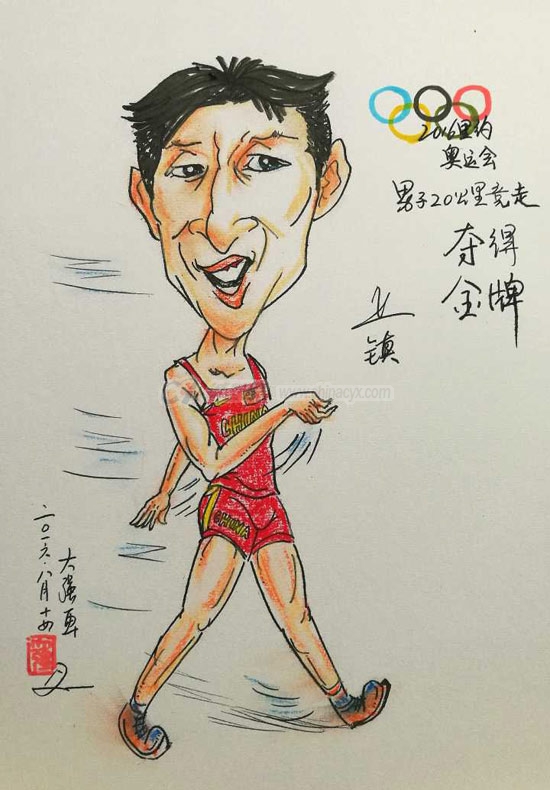 2016里约
奥运会
男子20公里竞走
夺得
金牌
王
镇
www.chinacyx.com
CHINA
CHINA
二〇一六·八月十四
大强画